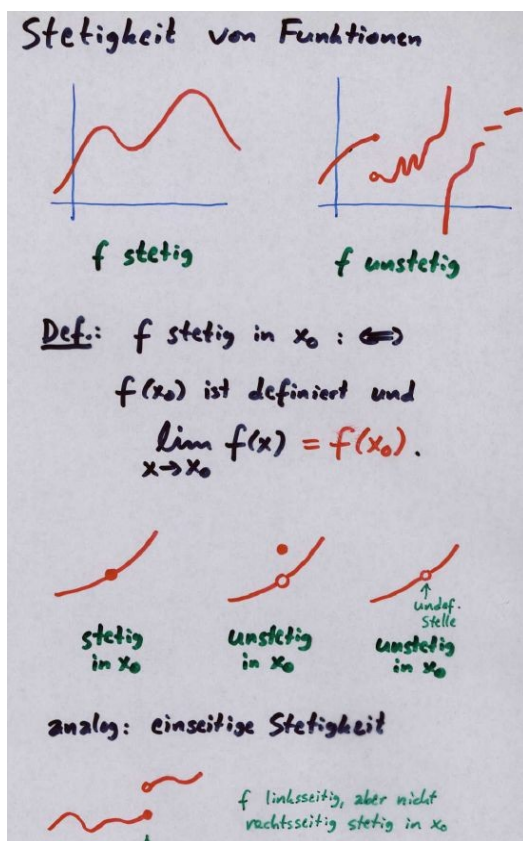 Stetigkeit von Funktionen
f stetig
f unstetig
Def.: f stetig in x₀ : ⟺
f(x₀) ist definiert und
lim f(x) = f(x₀).
x→x₀
stetig
in x₀
unstetig
in x₀
↑
undef.
Stelle
unstetig
in x₀
analog: einseitige Stetigkeit
f linksseitig, aber nicht
rechtsseitig stetig in x₀